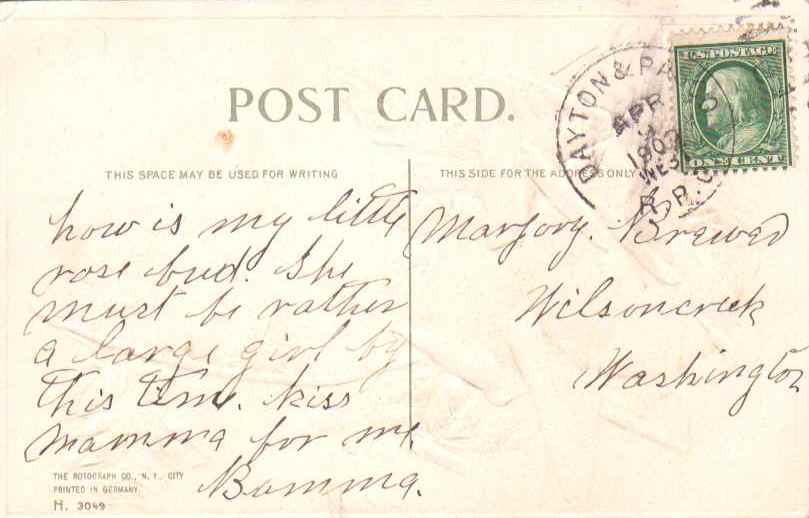 POST CARD.
THIS SPACE MAY BE USED FOR WRITING
THIS SIDE FOR THE ADDRESS ONLY
U.S. POSTAGE
ONE CENT
DAYTON & PA
APR
WEST
R.P.O.
how is my little
rose bud. She
must be rather
a large girl by
this time. kiss
mamma for me
Bamma.
Marjory. Brewer
Wilsoncreek
Washington
THE ROTOGRAPH CO., N. Y. CITY
PRINTED IN GERMANY
H. 3049